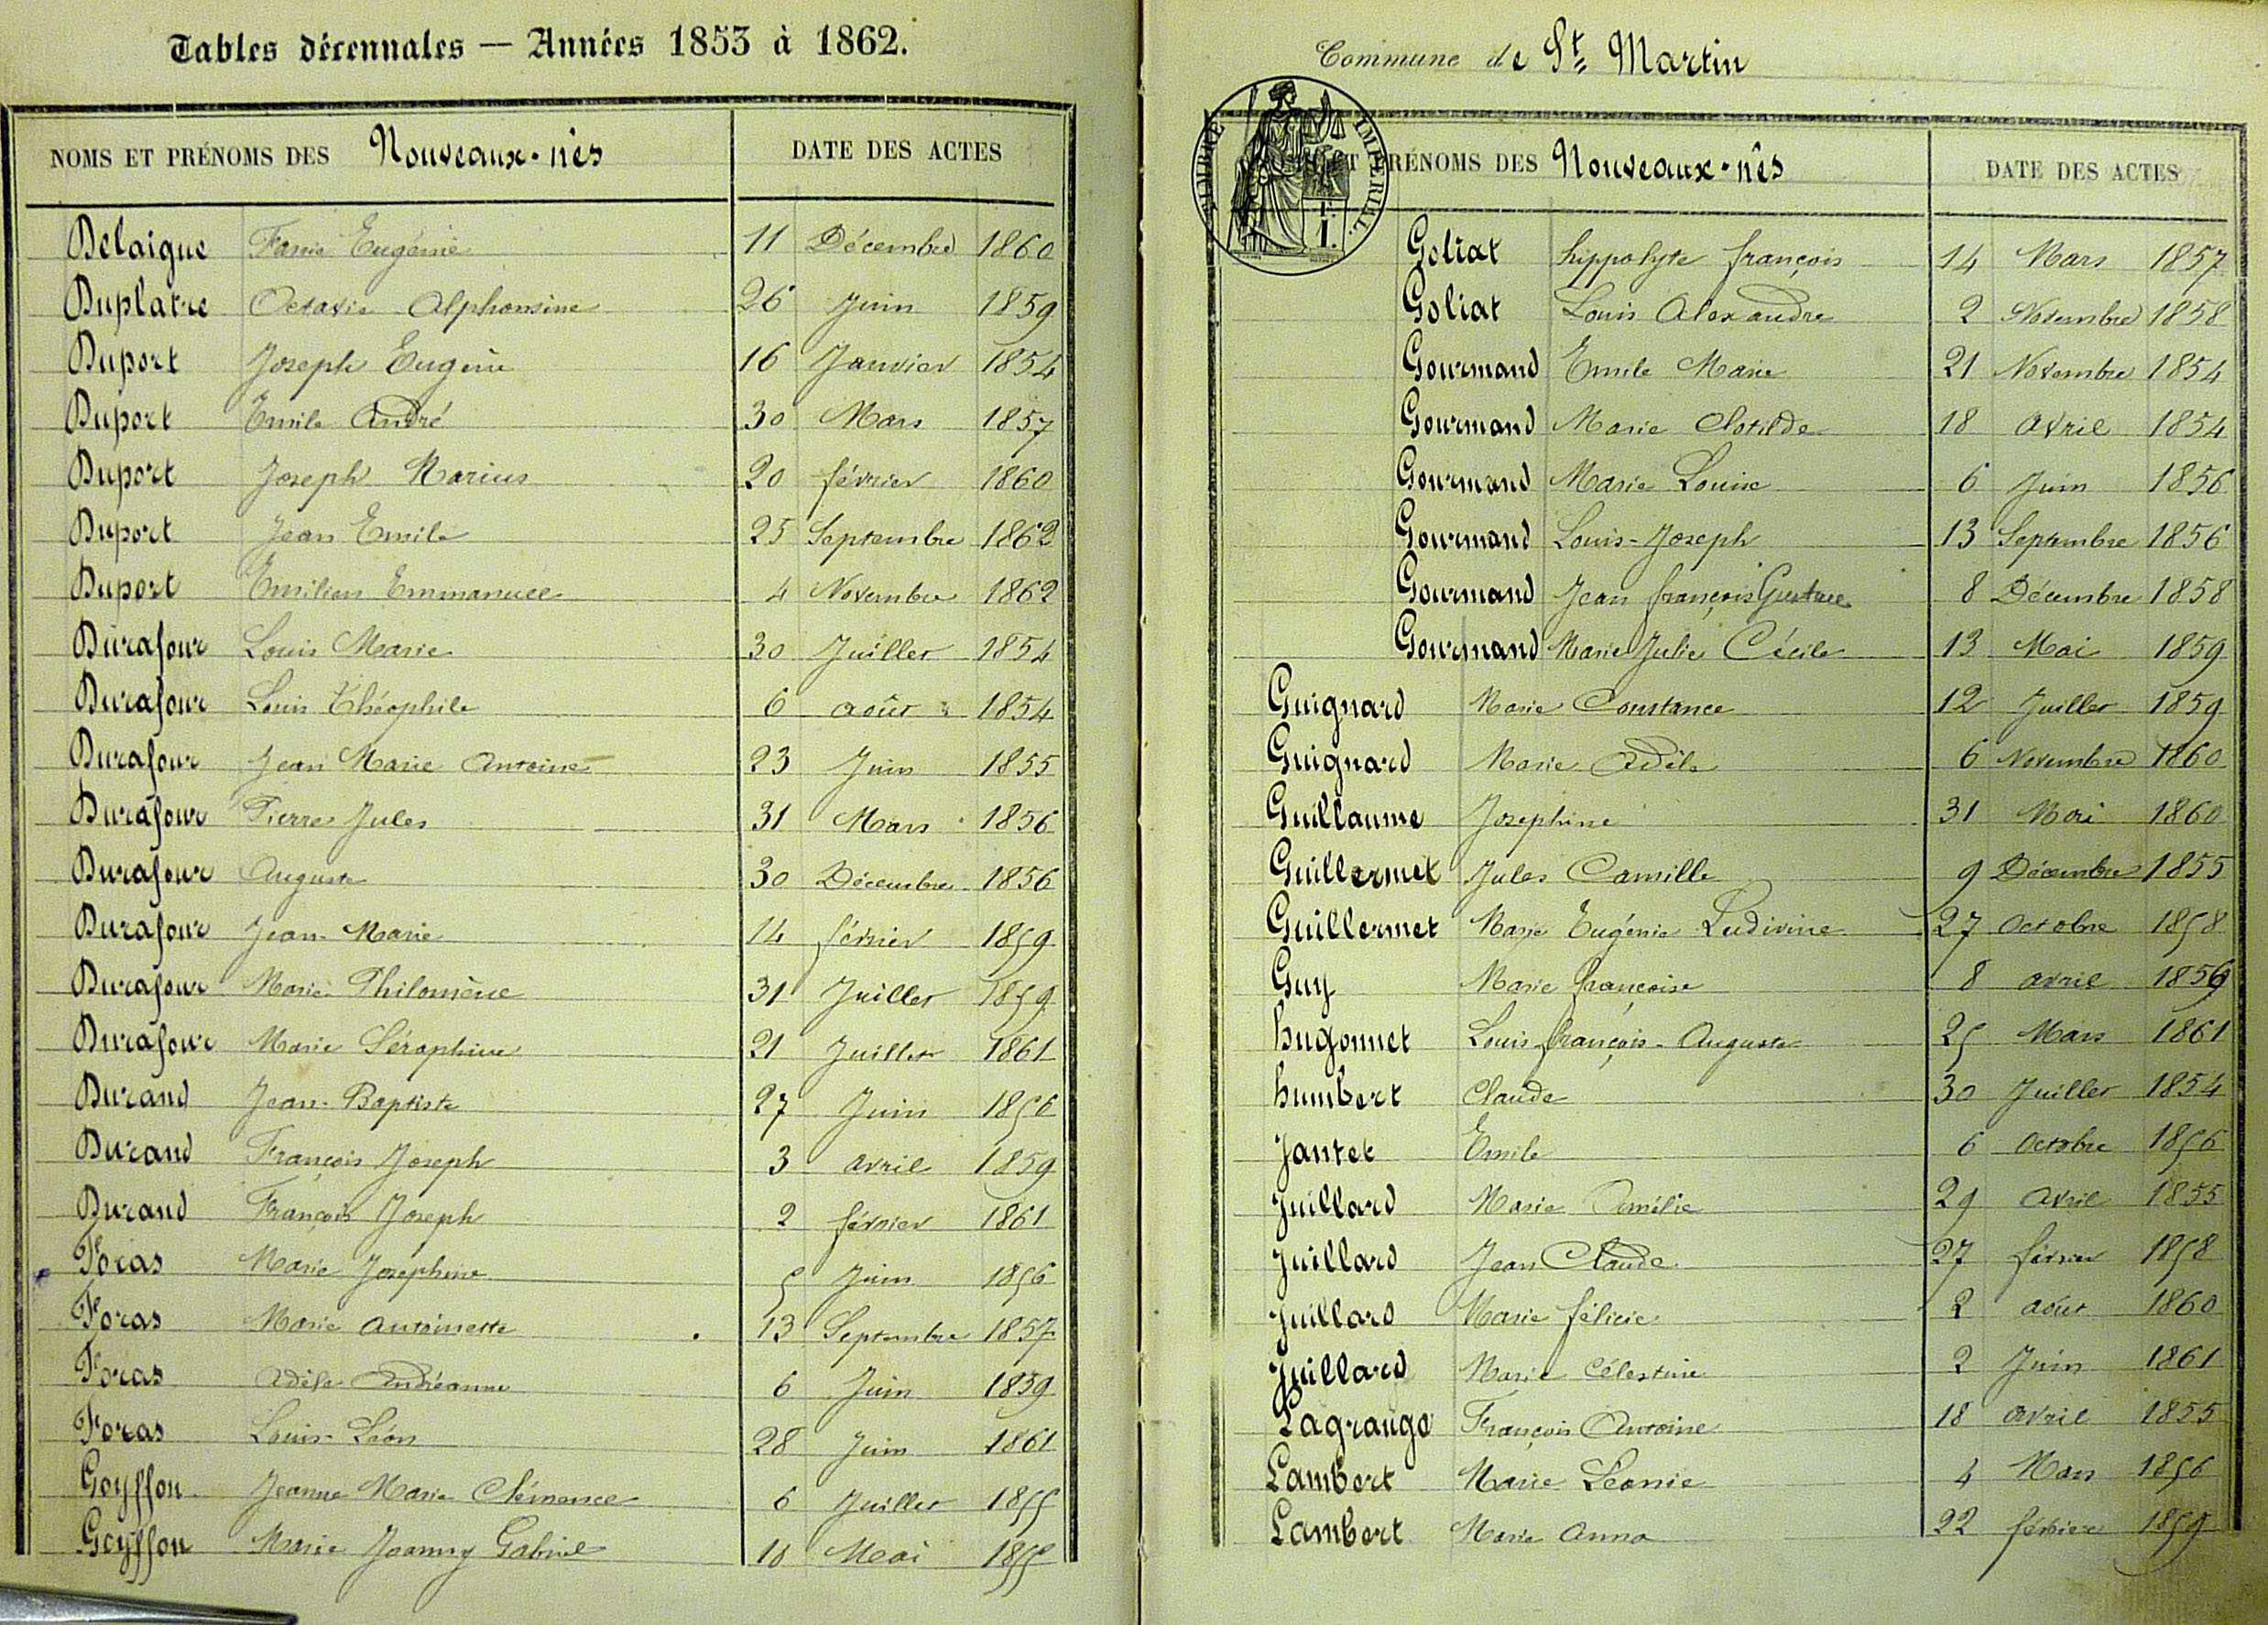 Tables décennales — Années 1853 à 1862.
NOMS ET PRÉNOMS DES Nouveaux-nés DATE DES ACTES
Delaigue Fanie Eugénie 11 Décembre 1860
Duplatre Octavie Alphonsine 26 Juin 1859
Duport Joseph Eugène 16 Janvier 1854
Duport Emile André 30 Mars 1857
Duport Joseph Marius 20 février 1860
Duport Jean Emile 25 Septembre 1862
Duport Emilien Emmanuel 4 Novembre 1862
Durafour Louis Marie 30 Juillet 1854
Durafour Louis Théophile 6 août 1854
Durafour Jean Marie Antoine 23 Juin 1855
Durafour Pierre Jules 31 Mars 1856
Durafour Auguste 30 Décembre 1856
Durafour Jean-Marie 14 février 1859
Durafour Marie Philomène 31 Juillet 1859
Durafour Marie Séraphine 21 Juillet 1861
Durand Jean-Baptiste 27 Juin 1856
Durand François Joseph 3 avril 1859
Durand François Joseph 2 février 1861
Foras Marie Josephine 5 Juin 1856
Foras Marie Antoinette 13 Septembre 1857
Foras Adèle Andréanne 6 Juin 1859
Foras Louis-Léon 28 Juin 1861
Goyffon Jeanne Marie Clémence 6 Juillet 1855
Goyffon Marie Joanny Gabriel 10 Mai
Commune de St Martin
TIMBRE IMPÉRIAL
ET PRÉNOMS DES Nouveaux-nés DATE DES ACTES
Goliat hippolyte françois 14 Mars 1857
Goliat Louis Alexandre 2 Novembre 1858
Gourmand Emile Marie 21 Novembre 1854
Gourmand Marie Clotilde 18 avril 1854
Gourmand Marie Louise 6 Juin 1856
Gourmand Louis-Joseph 13 Septembre 1856
Gourmand Jean françois Gustave 8 Décembre 1858
Gourmand Marie Julie Cécile 13 Mai 1859
Guignard Marie Constance 12 Juillet 1859
Guignard Marie Adèle 6 Novembre 1860
Guillaume Josephine 31 Mai 1860
Guillermet Jules Camille 9 Décembre 1855
Guillermet Marie Eugénie Ludivine 27 Octobre 1858
Guy Marie françoise 8 avril
hugonnet Louis-françois-Auguste 25 Mars 1861
humbert Claude 30 Juillet 1854
Jantet Emile 6 Octobre 1856
Juillard Marie Amélie 29 Avril 1855
Juillard Jean Claude 27 février 1858
Juillard Marie félicie 2 août 1860
Juillard Marie Célestine 2 Juin 1861
Lagrange François Antoine 18 avril 1855
Lambert Marie Léonie 4 Mars 1856
Lambert Marie Anna 22 février 1859